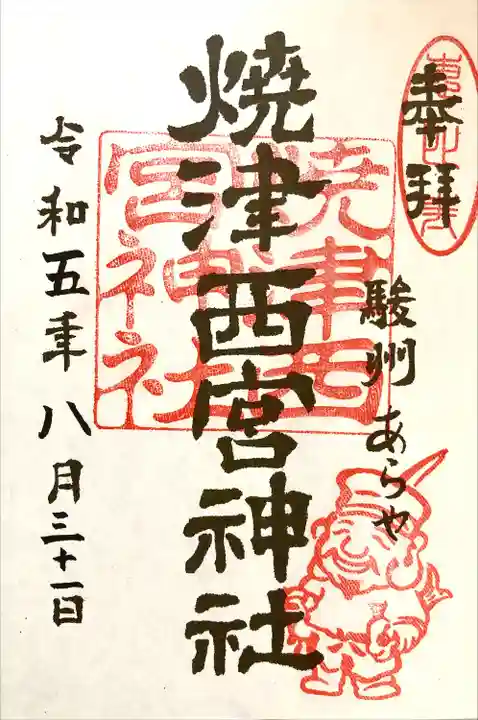 奉拝
駿州あらや
燒津西宮神社
令和五年八月三十一日
焼津西
宮神社